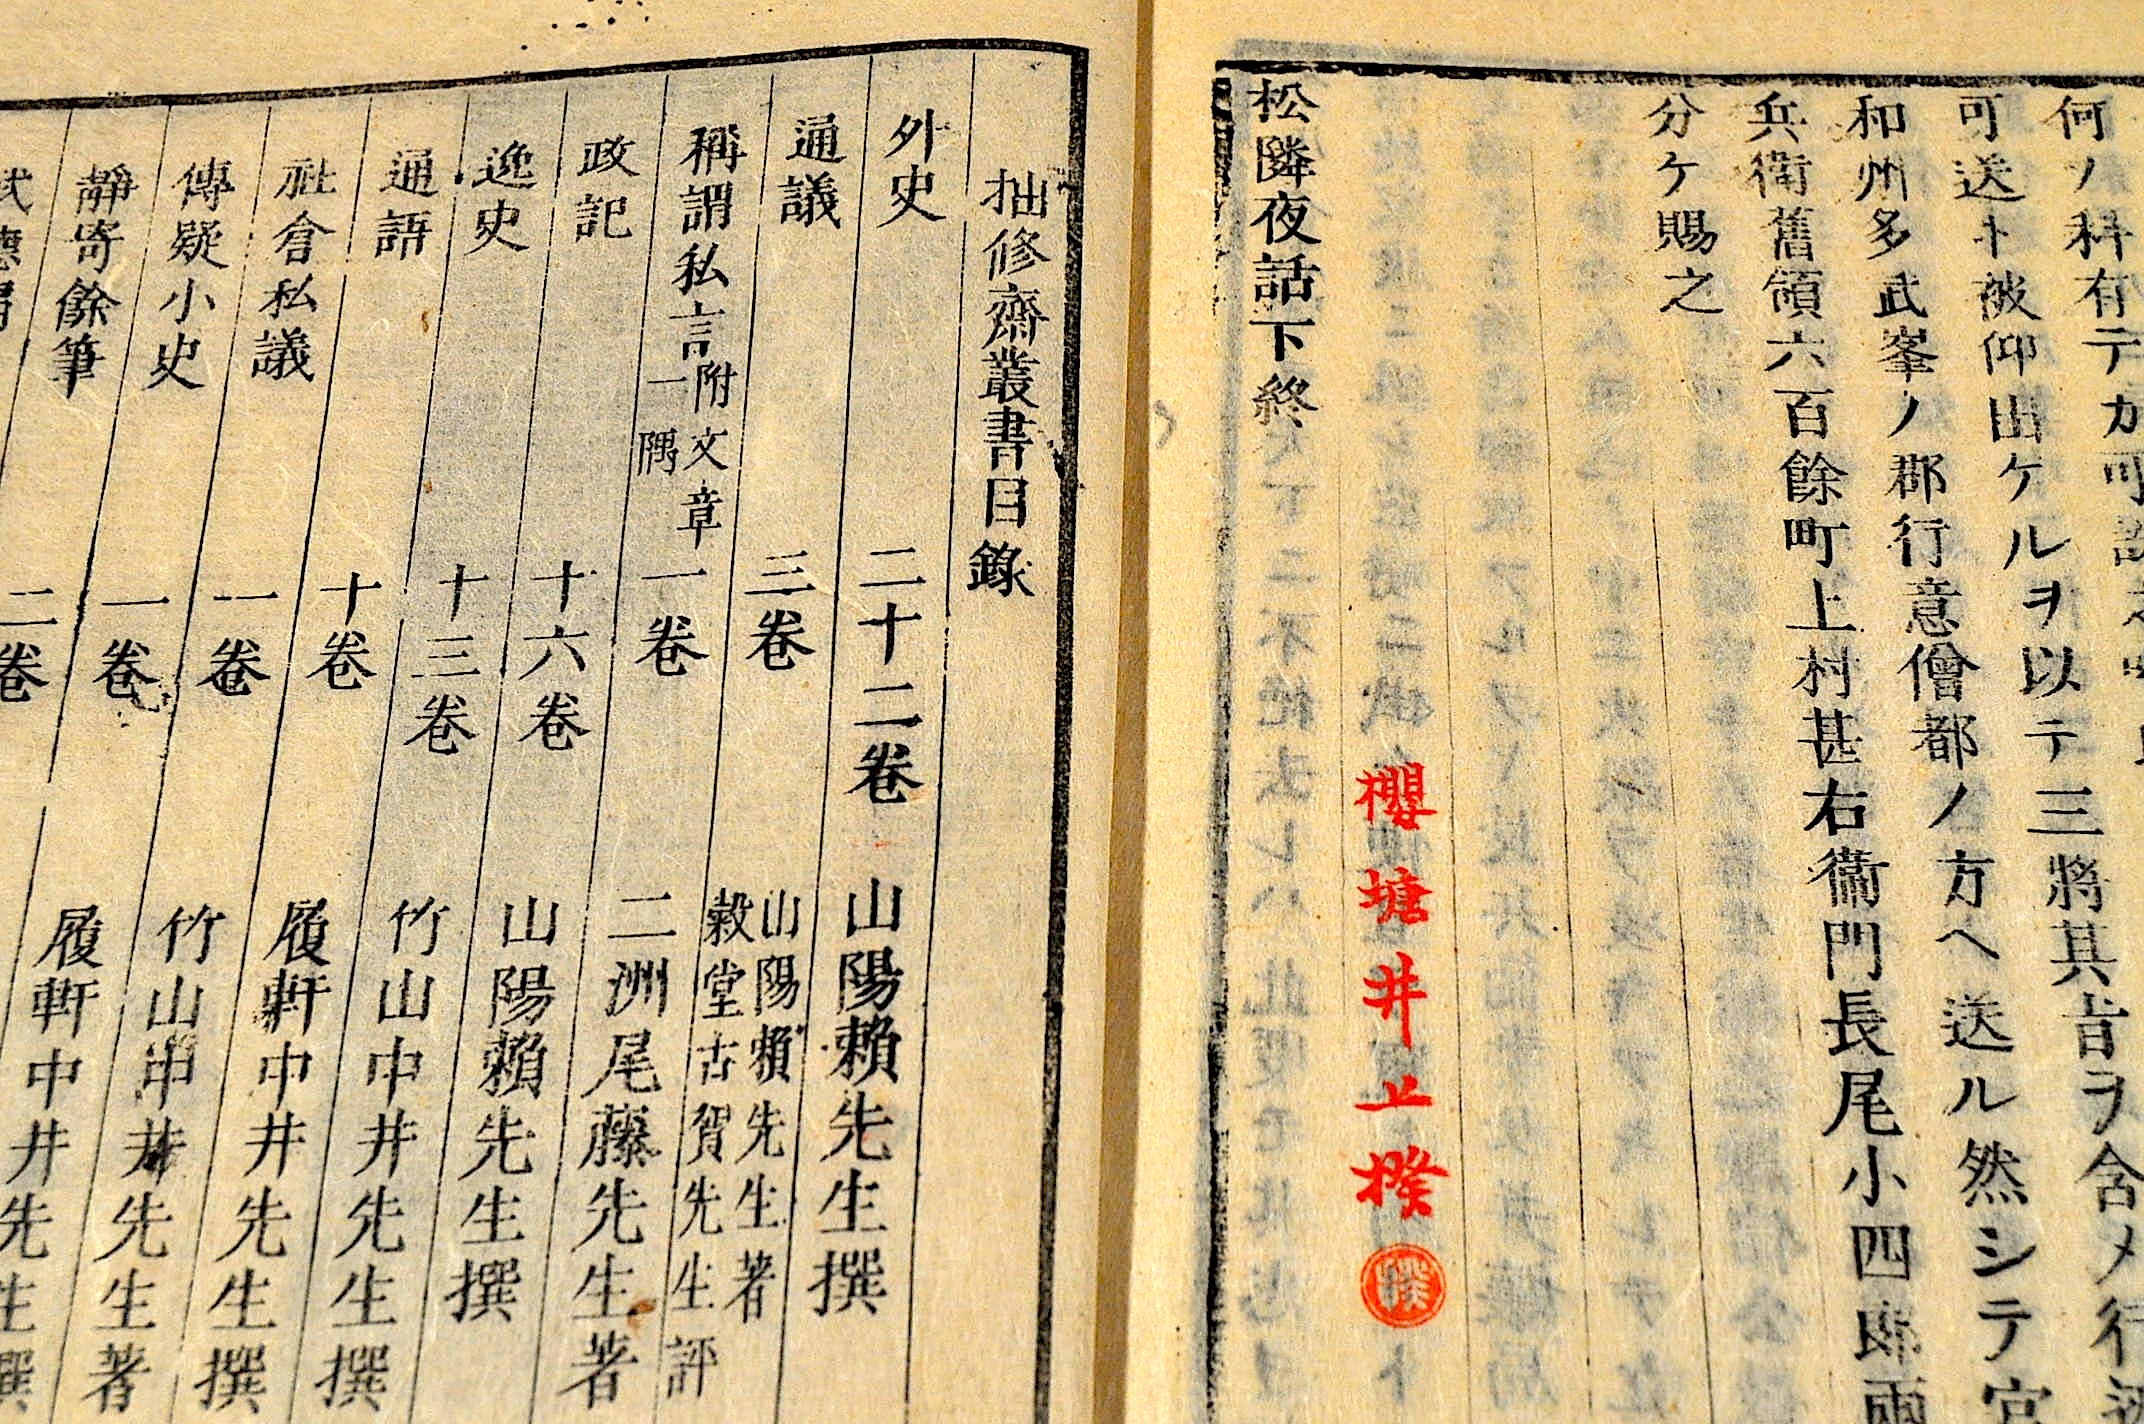 何ノ科有テカ可
可送ト被仰出ケルヲ以テ三將其旨ヲ含メ行
和州多武峯ノ郡行意僧都ノ方ヘ送ル然シテ宮
兵衞舊領六百餘町上村甚右衞門長尾小四郎兩
分ケ賜之
櫻塘井止揆
松隣夜話下終
拙修齋叢書目錄
外史 二十二卷 山陽賴先生撰
通議 三卷 山陽賴先生著 穀堂古賀先生評
稱謂私言附文章一隅 一卷 二洲尾藤先生著
政記 十六卷 山陽賴先生撰
逸史 十三卷 竹山中井先生撰
通語 十卷 履軒中井先生撰
社倉私議 一卷 竹山中井先生撰
傳疑小史 一卷 履軒中井先生著
靜寄餘筆 二卷